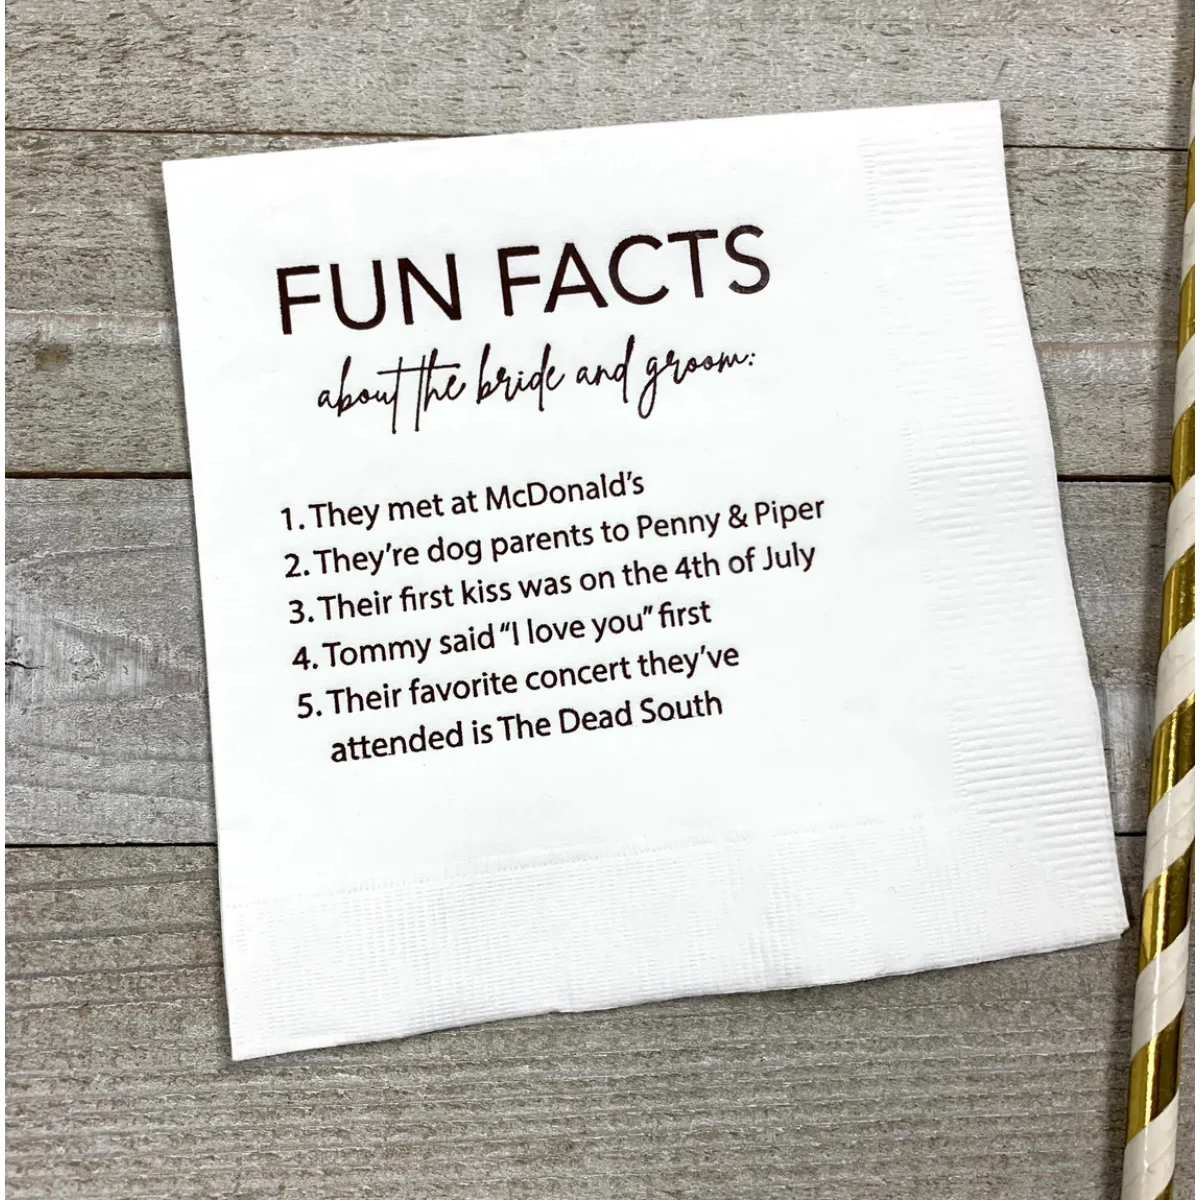 FUN FACTS
about the bride and groom:
1. They met at McDonald's
2. They're dog parents to Penny & Piper
3. Their first kiss was on the 4th of July
4. Tommy said "I love you" first
5. Their favorite concert they've
attended is The Dead South